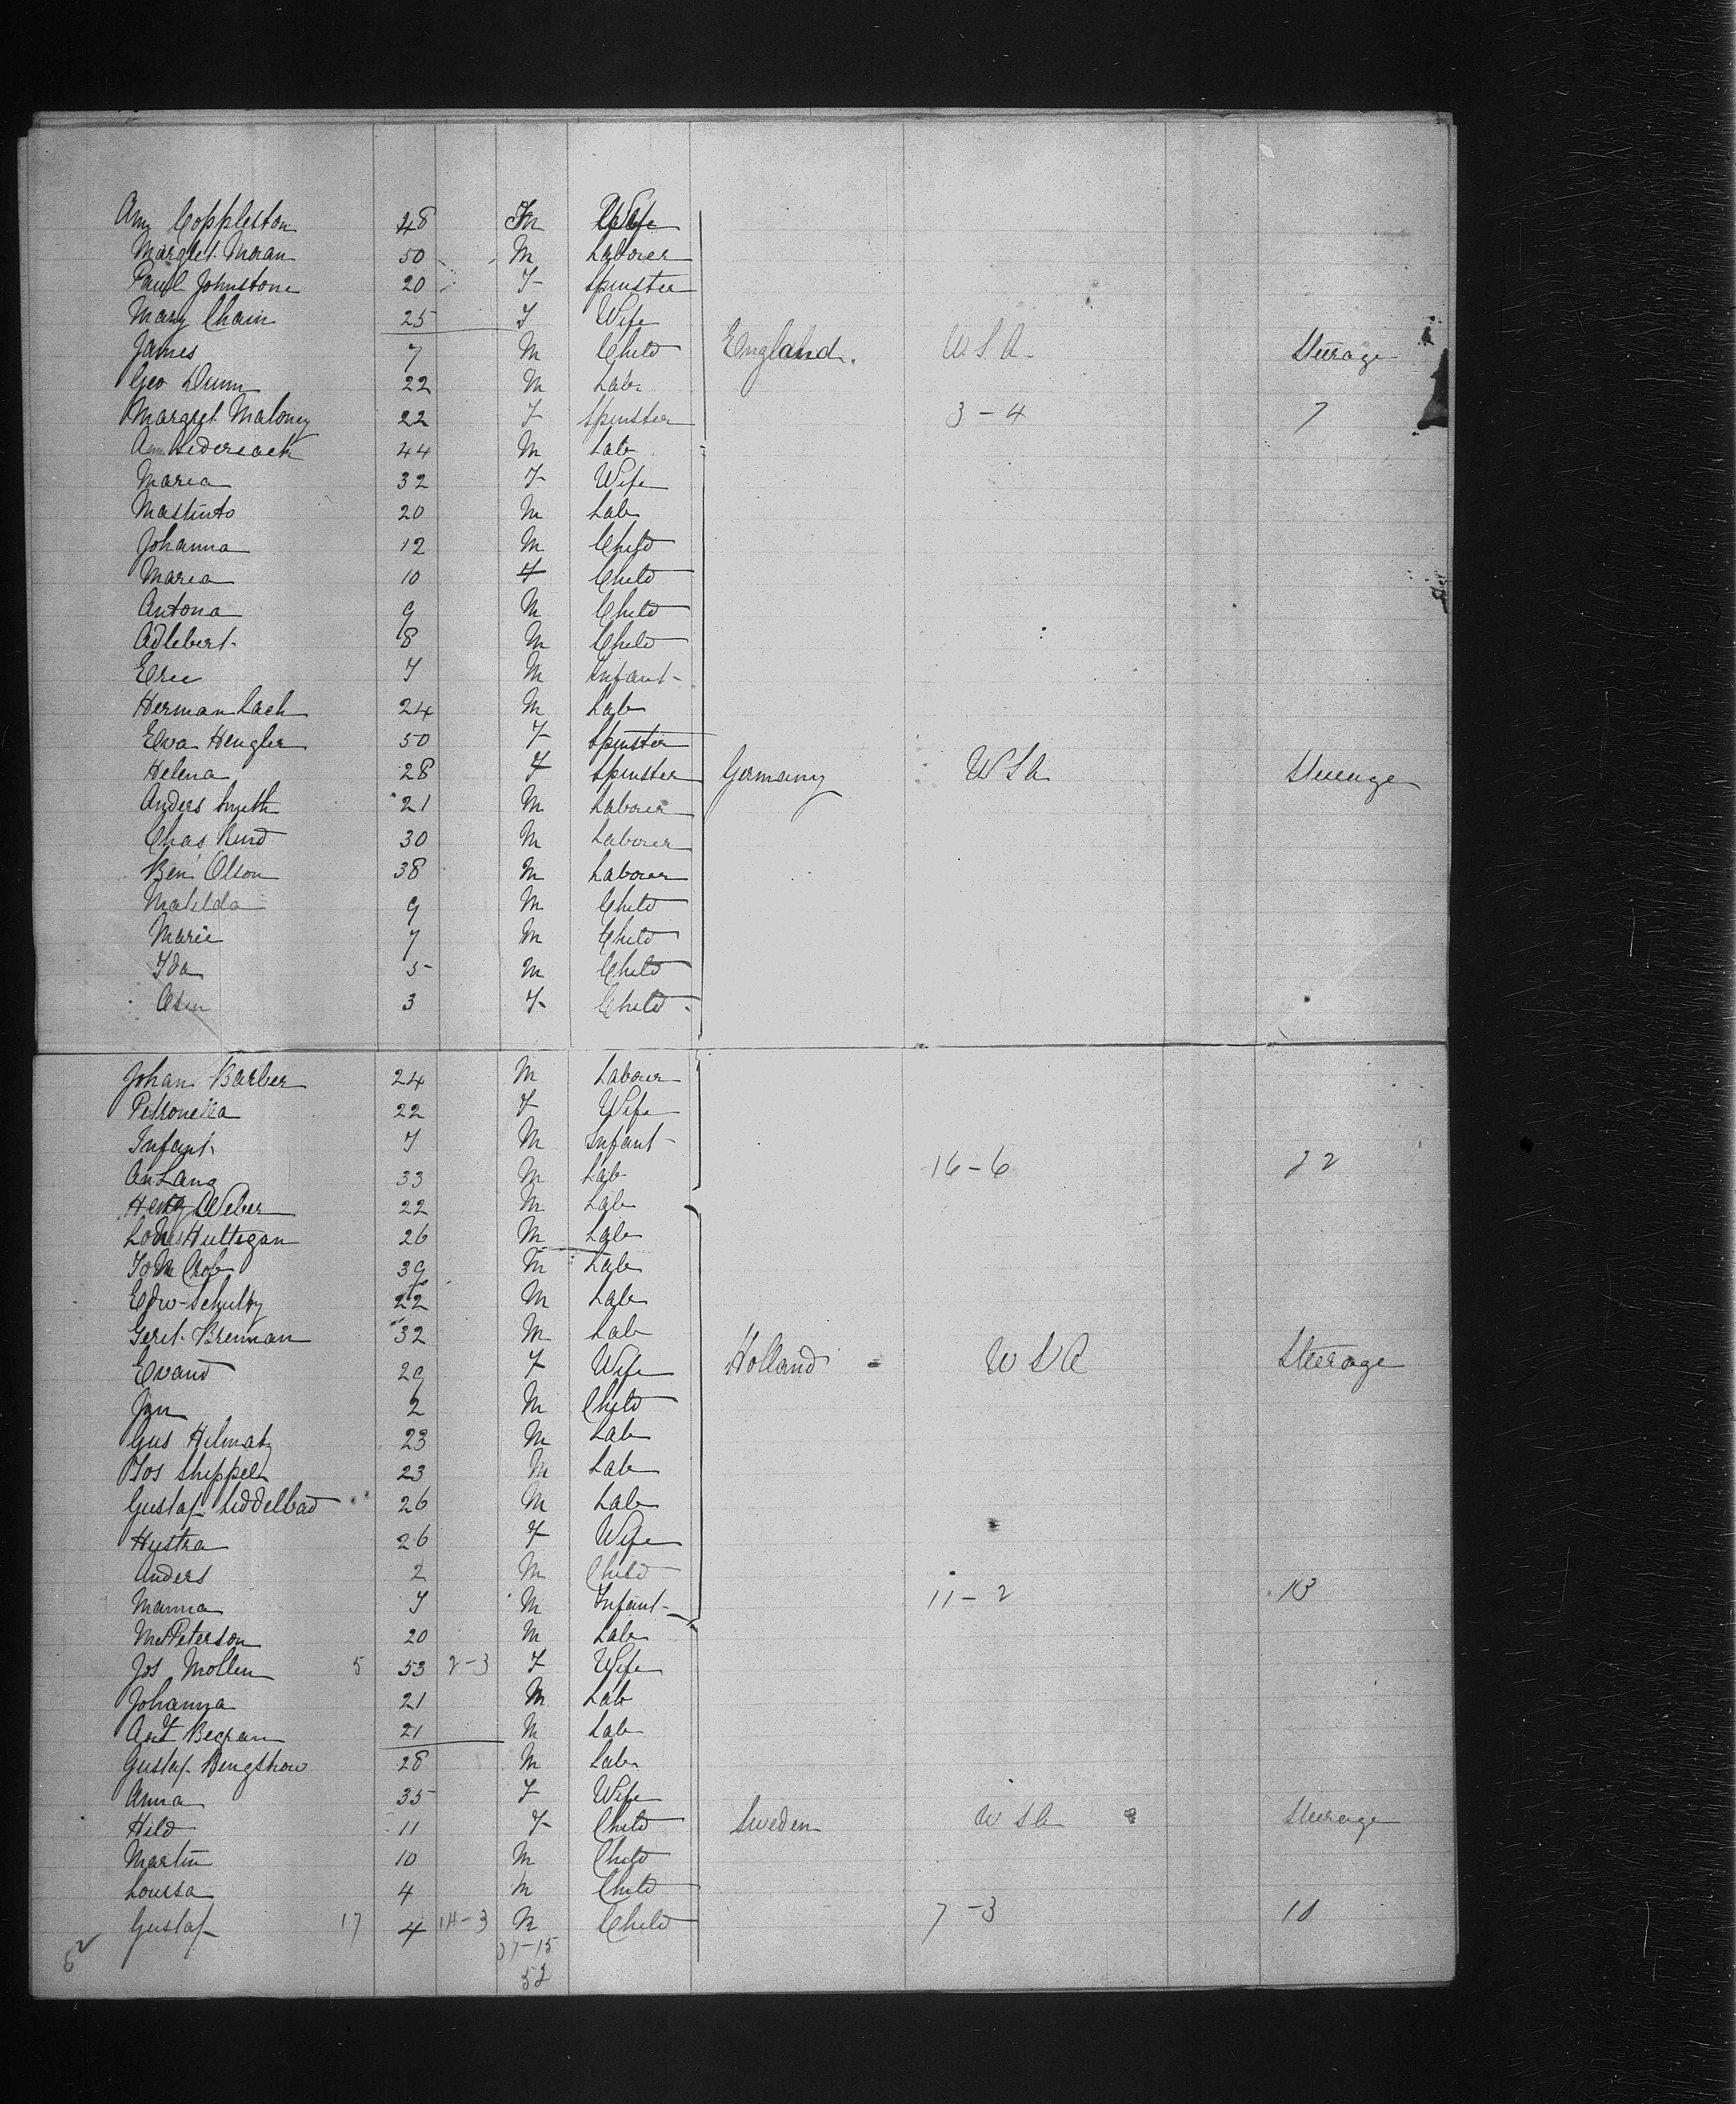 Ann Coppleston 48 Fm Wife
Margret Moran 50 M Laborer
Paul Johnstone 20 F Spinster
Mary Chain 25 F Wife
James 7 M Child England. U.S.A. Steerage
Geo Dunn 22 M Lab
Margret Maloney 22 F Spinster 3-4 7
44 M Lab
Maria 32 F Wife
Mastinto 20 M Lab
Johanna 12 M Child
Maria 10 F Child
Antona 9 M Child
Adlebert 8 M Child
Eric 7 M Infant
Herman Lach 24 M Lab
Eva Hengler 50 F Spinster
Helena 28 F Spinster Germany USA Steerage
Anders Smith 21 M Laborer
Chas Rurd 30 M Laborer
Ben Olson 38 M Laborer
Matilda 9 M Child
Marie 7 M Child
Ida 5 M Child
3 F Child
Johan Barber 24 M Laborer
Petronella 22 F Wife
Infant 7 M Infant
An Lang 33 M Lab 16-6 22
Henry Weber 22 M Lab
Hultegan 26 M Lab
39 M Lab
Edw Schultz 22 M Lab
Geret Brennan 32 M Lab
Evand 29 F Wife Holland USA Steerage
Jan 2 M Child
Gus Helmatz 23 M Lab
Jos Sheppel 23 M Lab
Gustaf Liddelbad 26 M Lab
Hustra 26 F Wife
Anders 2 M Child
Manna 7 M Infant 11-2 13
Peterson 20 M Lab
Jos Mollen 5 53 2-3 F Wife
Johanna 21 M Lab
21 M Lab
Gustaf Bengstrow 28 M Lab
Anna 35 F Wife
Hild 11 F Child Sweden USA Steerage
Martin 10 M Child
Louisa 4 M Child
Gustaf 17 4 14-3 M Child 7-3 10
62 37-15
52